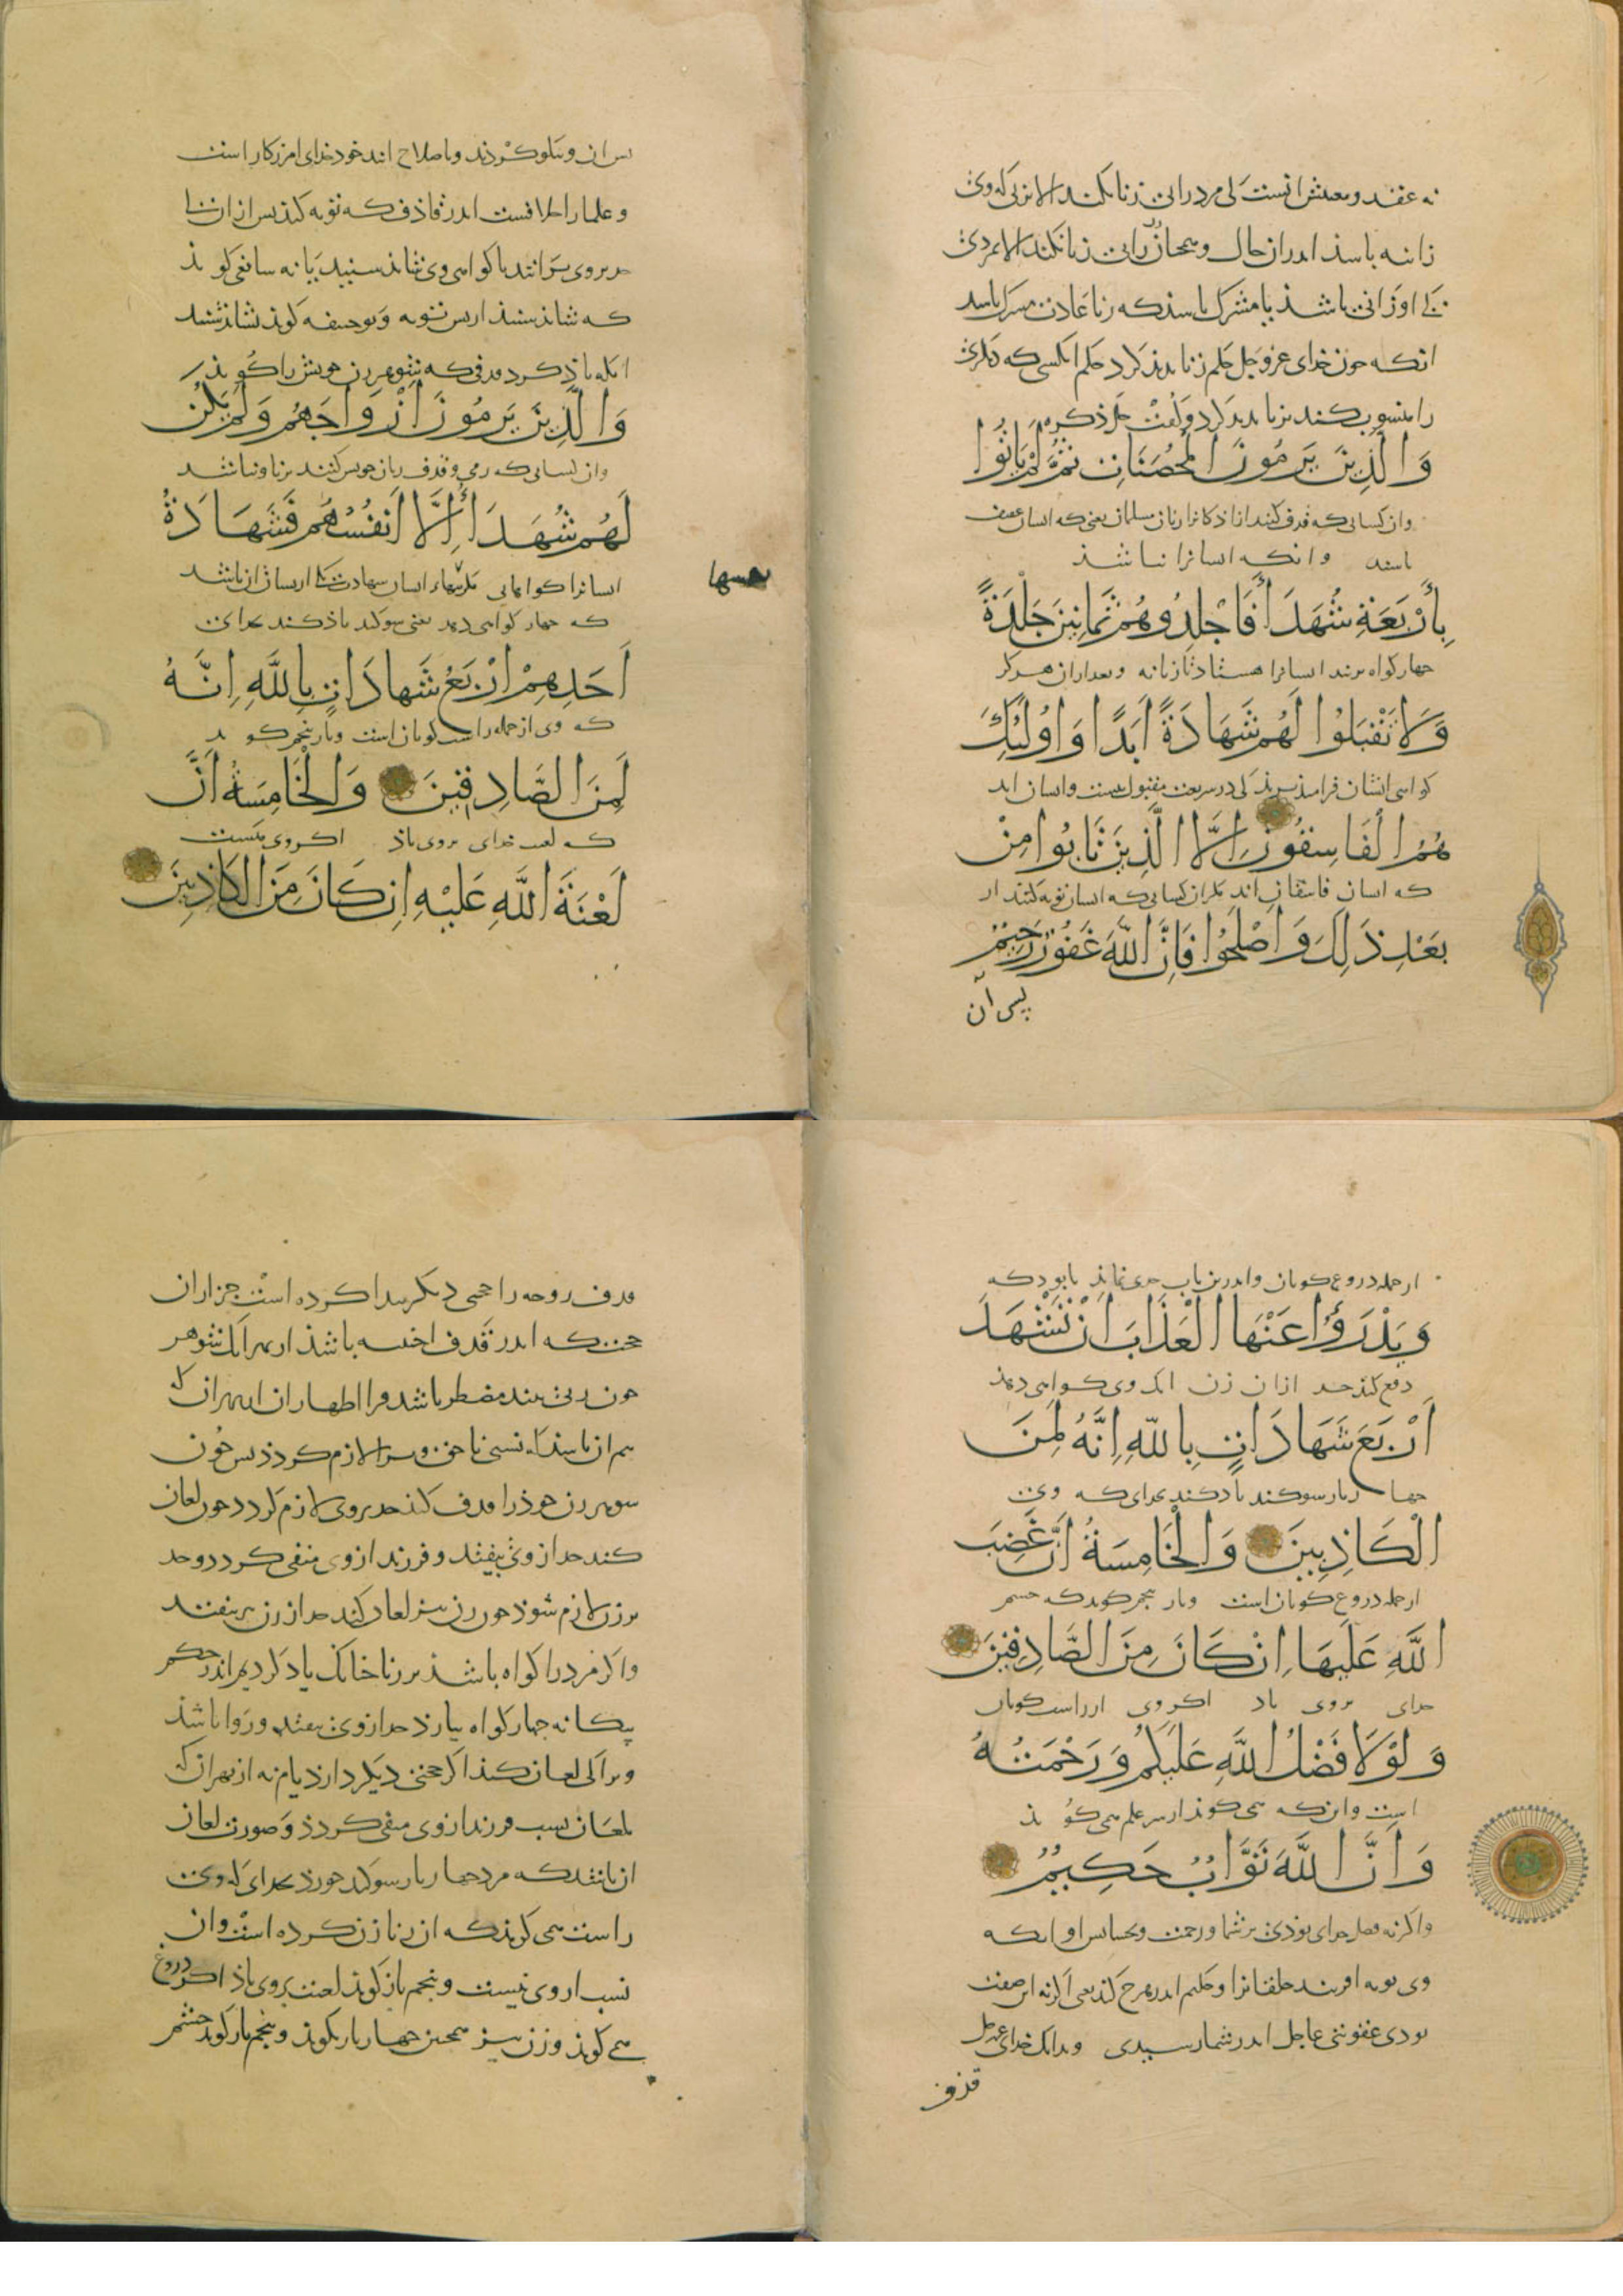 نه عقد و معنیش انست کی مرد زانی زنا نکند الا بزنی که وی
زانیه باشد اندران حال و همچنان زن زانی زنا نکند الا بمردی
کی او زانی باشد یا مشرک باشد که زنا عادت مشرک باشد
انکه جون خدای عزوجل حکم زنا بدید کرد حکم انکسی که دیگری
را منسوب کند بزنا بدید کرد و گفت جل ذکره
وَالَّذِينَ يَرْمُونَ الْمُحْصَنَاتِ ثُمَّ لَمْ يَأْتُوا
وان کسانی که قذف کنند ازاذکانرا زنان مسلمان یعنی که ایشان عفیف
باشند وانکه ایشانرا نباشذ
بِأَرْبَعَةِ شُهَدَاءَ فَاجْلِدُوهُمْ ثَمَانِينَ جَلْدَةً
جهار کواه بزنند ایشانرا هشتاد تازیانه وبعد ازان هرکز
وَلَا تَقْبَلُوا لَهُمْ شَهَادَةً أَبَدًا وَأُولَئِكَ
کواهی ایشان فرامپذیرید کی در شریعت مقبول نیست وایشان اند
هُمُ الْفَاسِقُونَ إِلَّا الَّذِينَ تَابُوا مِنْ
که ایشان فاسقان اند مکر ان کسانی که ایشان توبه کنند از
بَعْدِ ذَلِكَ وَأَصْلَحُوا فَإِنَّ اللَّهَ غَفُورٌ رَحِيمٌ
پس آن
پس ان و نیکو کردند و با صلاح امدند خدای امرزکار است
و علما را خلافست اندر قاذف که توبه کند پس ازان تا
حد بر وی برانند یا کواهی وی شاید شنید یا نه شافعی کوید
که شاید شنید از پس توبه و بوحنیفه کوید نشاید شنید
انکه یاد کرد قذفی که شوهر زن خویش را کوید
وَالَّذِينَ يَرْمُونَ أَزْوَاجَهُمْ وَلَمْ يَكُنْ
وان کسانی که رمی و قذف زنان خویش کنند بزنا و نباشد
لَهُمْ شُهَدَاءُ إِلَّا أَنْفُسُهُمْ فَشَهَادَةُ
ایشانرا کواهانی مکر تنهاء ایشان شهادت یکی از یشان ان باشد
که جهار کواهی دهد یعنی سوکند یاذ کند بخدای
أَحَدِهِمْ أَرْبَعُ شَهَادَاتٍ بِاللَّهِ إِنَّهُ
که وی از جمله راست کویان است و بار پنجم کوید
لَمِنَ الصَّادِقِينَ وَالْخَامِسَةُ أَنَّ
که لعنت خدای بروی باذ اکر وی هست
لَعْنَةَ اللَّهِ عَلَيْهِ إِنْ كَانَ مِنَ الْكَاذِبِينَ
از جمله دروغ کویان
وَيَدْرَؤُا عَنْهَا الْعَذَابَ أَنْ تَشْهَدَ
دفع کند حد ازان زن انک وی کواهی دهد
أَرْبَعَ شَهَادَاتٍ بِاللَّهِ إِنَّهُ لَمِنَ
جهار بار سوکند یاد کند بخدای که وی
الْكَاذِبِينَ وَالْخَامِسَةَ أَنَّ غَضَبَ
از جمله دروغ کویان است وبار پنجم کوید که خشم
اللَّهِ عَلَيْهَا إِنْ كَانَ مِنَ الصَّادِقِينَ
خدای بروی باد اکر وی از راست کویان
وَلَوْلَا فَضْلُ اللَّهِ عَلَيْكُمْ وَرَحْمَتُهُ
است وانکه می کوید از سر علم می کوید
وَأَنَّ اللَّهَ تَوَّابٌ حَكِيمٌ
واکرنه فضل خدای بودی بر شما و رحمت و بخشایش او و انکه
وی توبه افریند خلقانرا و حکیم اندر هرچ کند یعنی اکرنه این صفت
بودی عقوبتی عاجل اندر شما رسیدی و بدانک خدای عزوجل
قذف
قذف زوجه را حکمی دیکر بیدا کرده است جز از ان
حجت که اندر قذف اجنبیه باشد از بهر انک شوهر
جون زنی بیند مضطر باشد فرا اظهار ان از بهر ان که
بیم ان باشد که نسبی ناحق ویرا لازم کردد پس جون
شوهر زن خوذ را قذف کند حد بروی لازم کردد جون لعان
کند حد از وی بیفتد و فرزند ازوی منفی کردد و حد
بر زن لازم شود جون زن نیز لعان کند حد از زن نیز بیفتد
واکر مرد را کواه باشد بر زنا جنانک یاد کردیم اندر حکم
بیکانه جهار کواه بیارد حد از وی بیفتد و روا باشد
ویرا کی لعان کند اکر حجتی دیکر دارد یا نه از بهر ان که
بلعان نسب فرزند از وی منفی کردد و صورت لعان
ان باشد که مرد جهار بار سوکند خورد بخدای که وی
راست می کوید که ان زنا زن کرده است وان
نسب از وی نیست و پنجم بار کوید لعنت بروی باذ اکر دروغ
می کوید و زن نیز همجنین جهار بار بکوید و پنجم بار کوید خشم